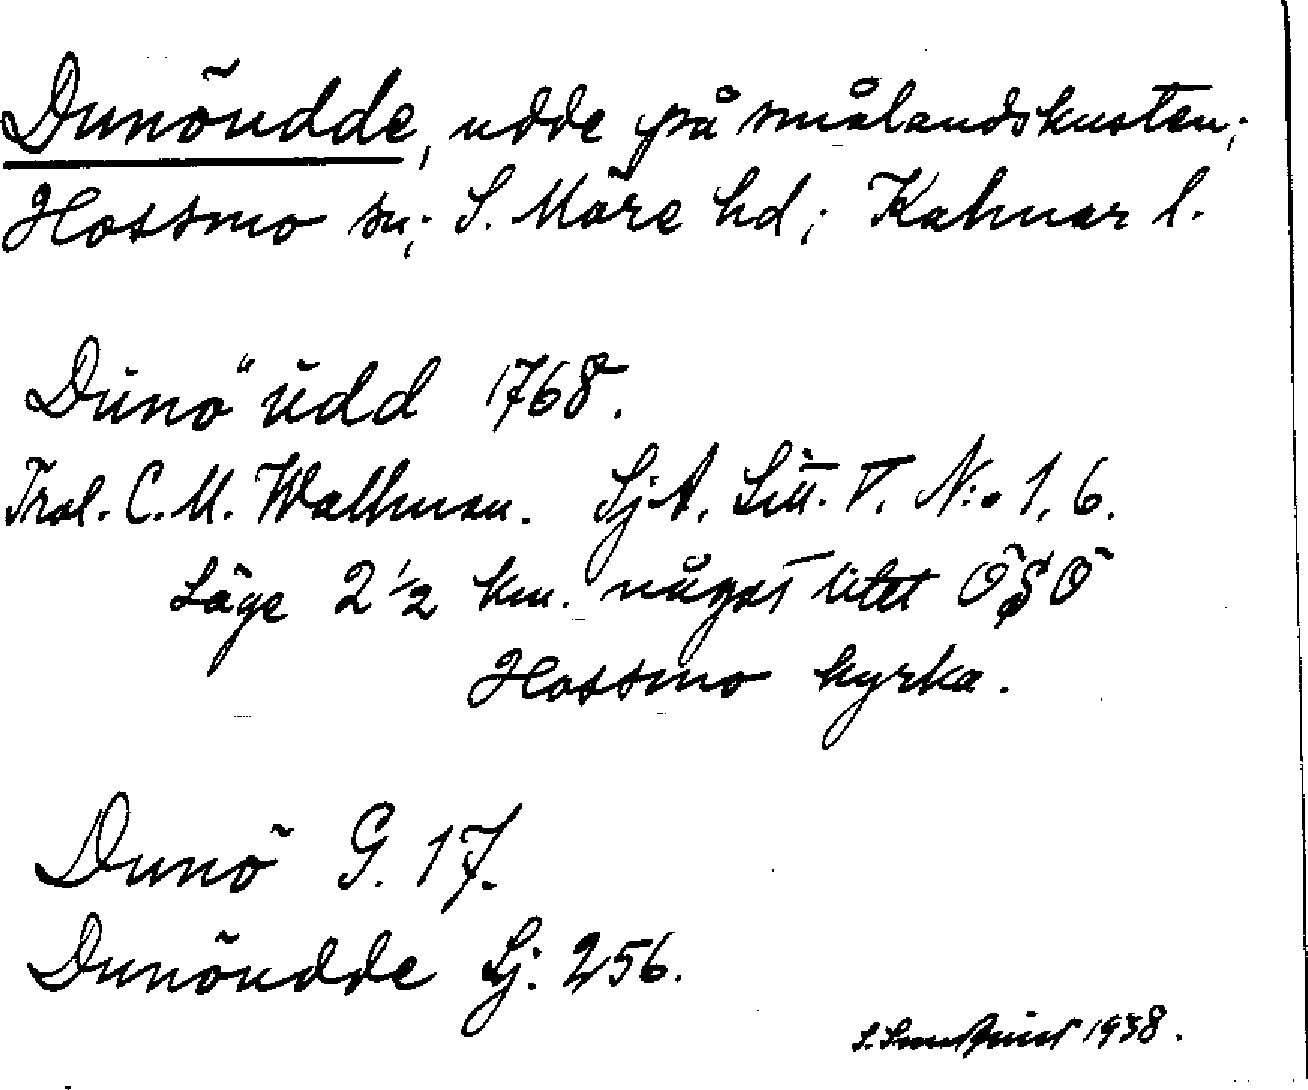 Dunöudde, udde på smålandskusten;
Hossmo sn; S. Möre hd; Kalmar l.
Dunö udd 1768.
C. M. Wallman. Sj.A. Litt. T. N:o 1, 6.
Läge 2 1/2 km. något litet ÖSÖ
Hossmo kyrka.
Dunö G. 17.
Dunöudde Sj. 256.
1938.